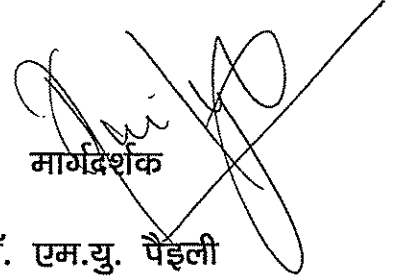 मार्गदर्शक
. एम.यु. पैइली